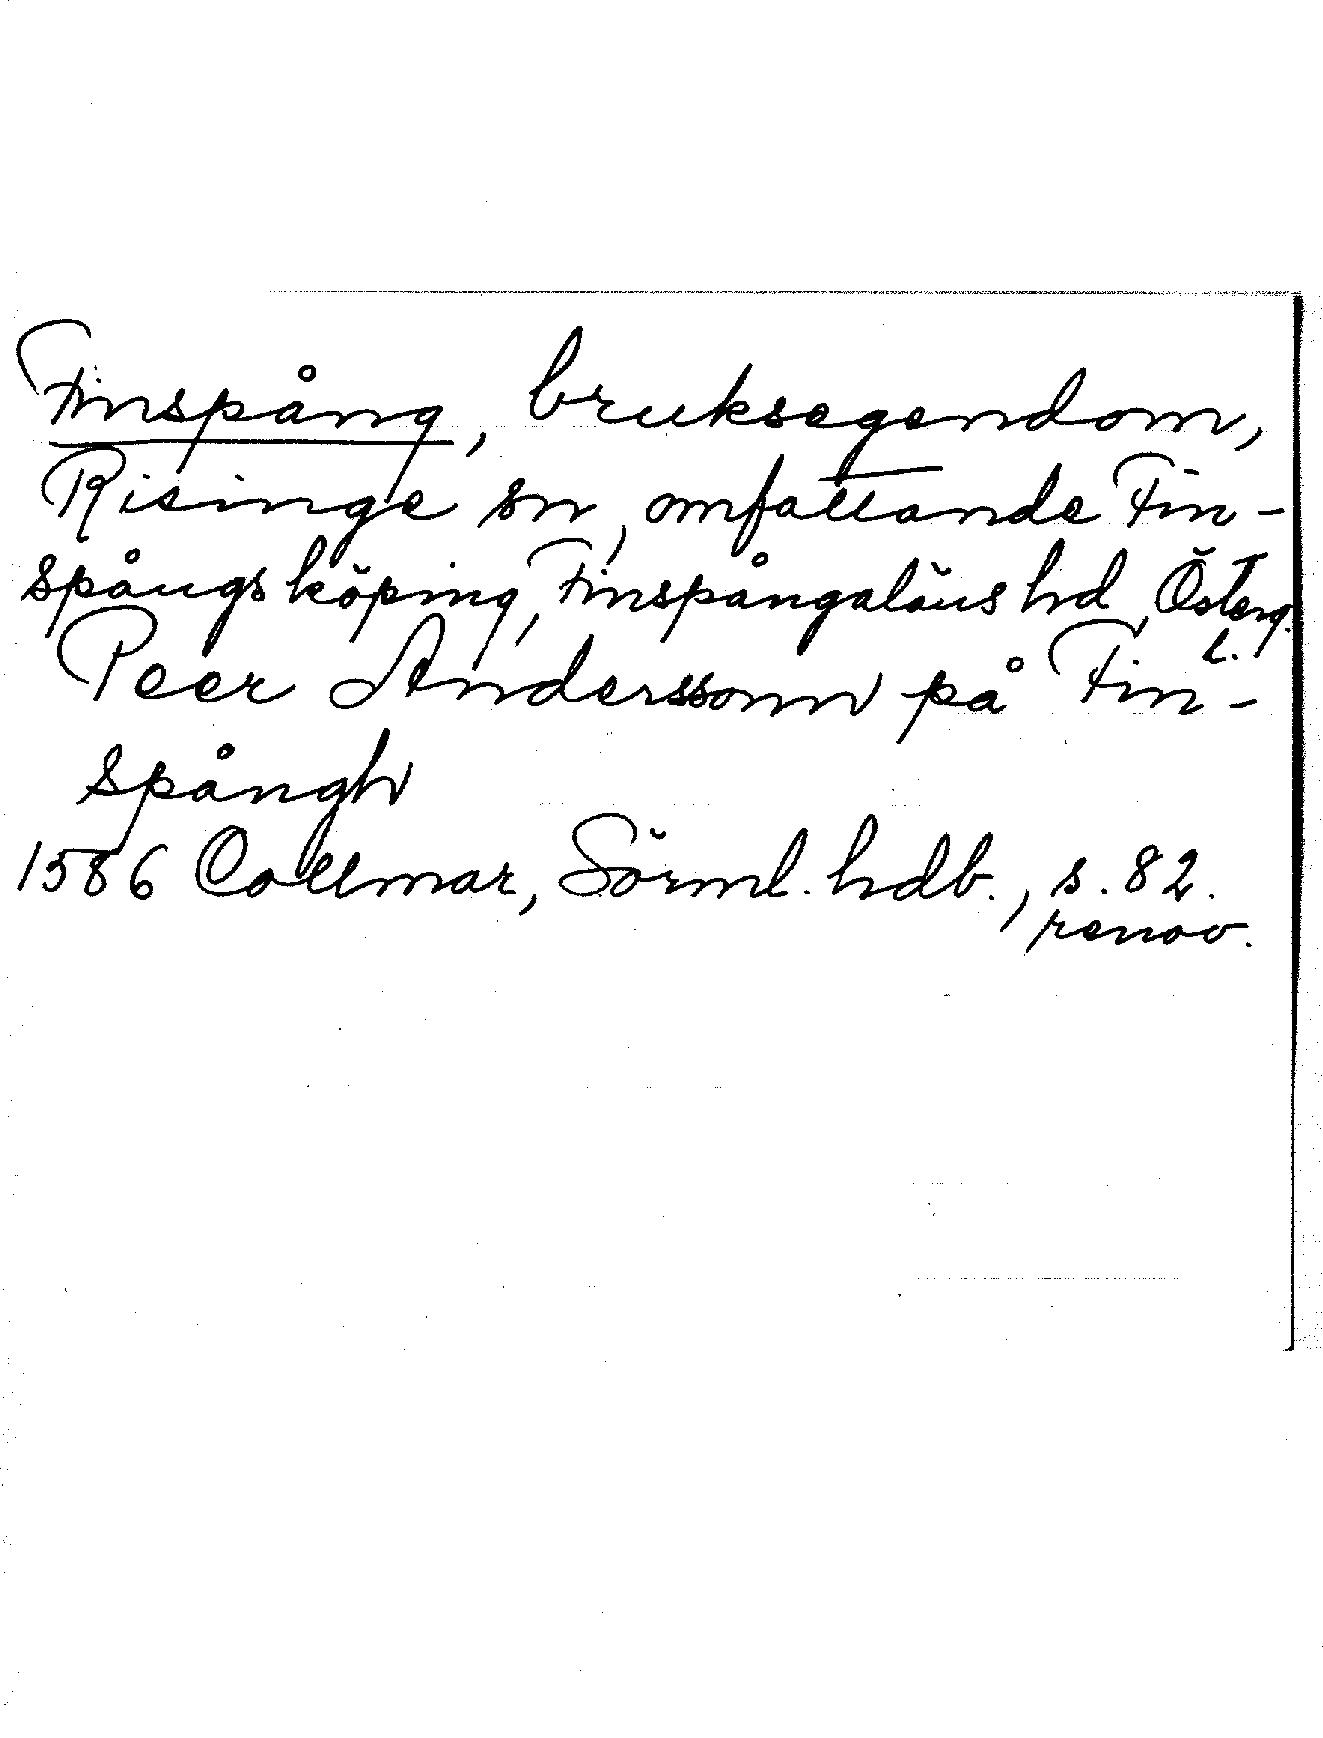 Finspång, bruksegendom,
Risinge sn, omfattande Fin-
spångs köping, Finspångaläns hd, Österg.
L.
Peer Anderssonn på Fin-
spångh
1586 Collmar, Sörml. hdb., s. 82.
renov.